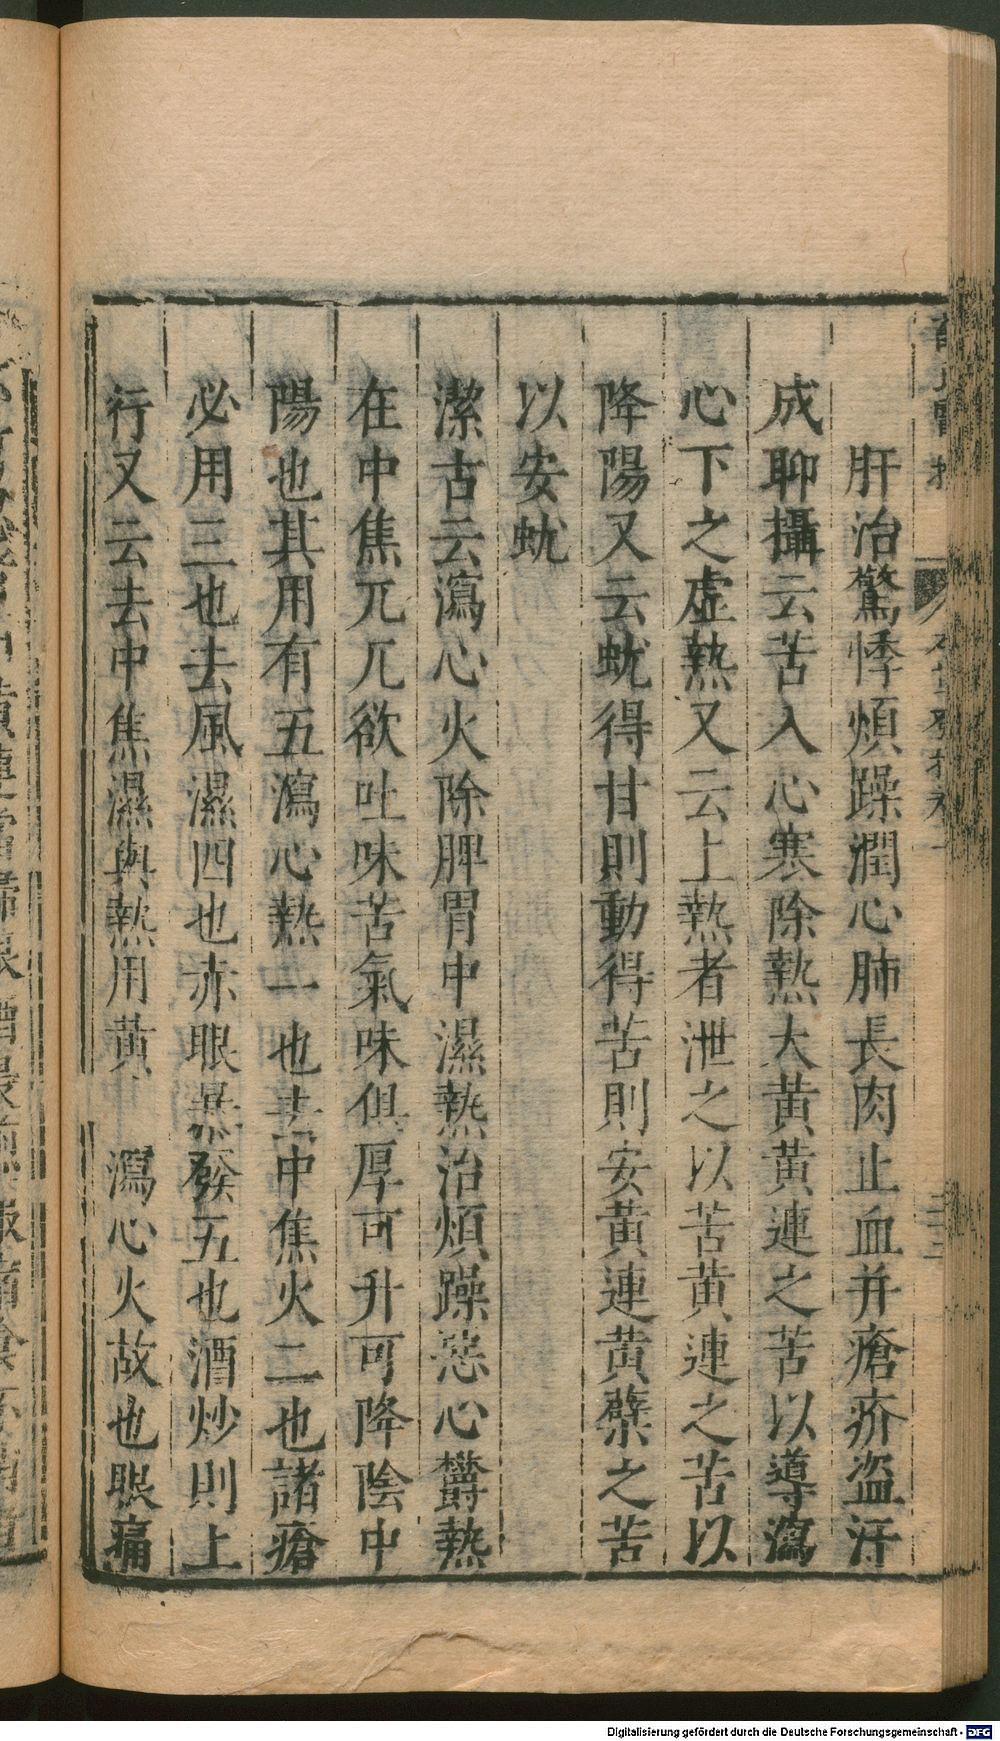 肝治驚悸煩躁潤心肺長肉止血并瘡疥盗汗
成聊攝云苦入心寒除熱大黃黃連之苦以導瀉
心下之虛熱又云上熱者泄之以苦黃連之苦以
降陽又云蚘得甘則動得苦則安黃連黃蘗之苦
以安蚘
潔古云瀉心火除脾胃中濕熱治煩躁惡心欝熱
在中焦兀兀欲吐味苦氣味俱厚可升可降陰中
陽也其用有五瀉心熱一也去中焦火二也諸瘡
必用三也去風濕四也赤眼暴發五也酒炒則上
行又云去中焦濕與熱用黃瀉心火故也眼痛
Digitalisierung gefördert durch die Deutsche Forschungsgemeinschaft - DFG